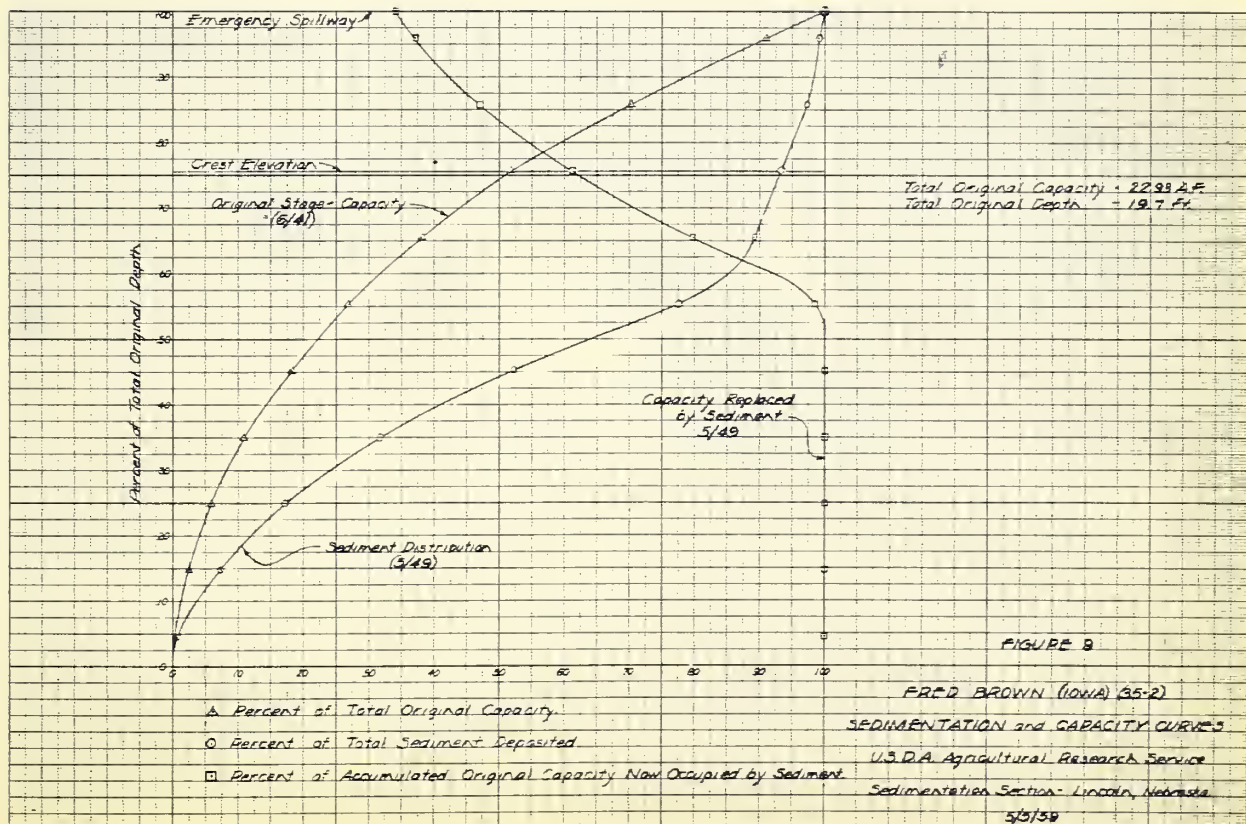 Emergency Spillway
100
90
80
Crest Elevation
Original Stage-Capacity
(6/41)
Total Original Capacity - 22.99 A.F.
Total Original Depth - 19.7 Ft.
70
60
50
40
30
20
10
0
Percent of Total Original Depth
Capacity Replaced
by Sediment
5/49
Sediment Distribution
(5/49)
0 10 20 30 40 50 60 70 80 90 100
△ Percent of Total Original Capacity.
○ Percent of Total Sediment Deposited.
□ Percent of Accumulated Original Capacity Now Occupied by Sediment.
FIGURE 9
FRED BROWN (IOWA) (35-2)
SEDIMENTATION and CAPACITY CURVES
U.S.D.A. Agricultural Research Service
Sedimentation Section - Lincoln, Nebraska
5/5/59